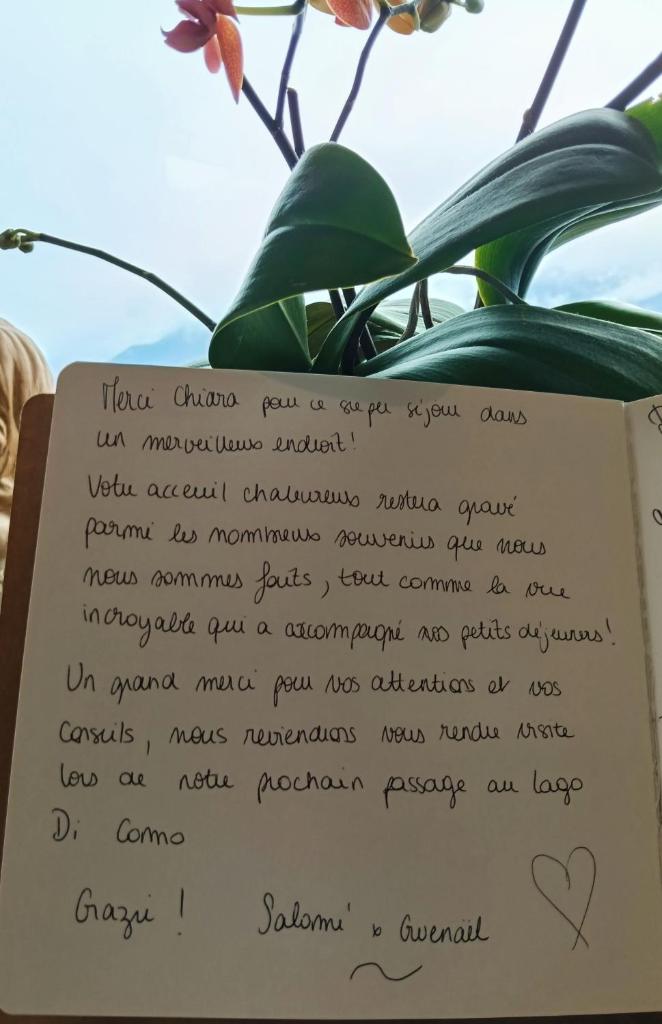 Merci Chiara pour ce super séjour dans
un merveilleux endroit!
Votre acceuil chaleureux restera gravé
parmi les nombreux souvenirs que nous
nous sommes faits, tout comme la vue
incroyable qui a accompagné nos petits déjeuners!
Un grand merci pour vos attentions et vos
conseils, nous reviendrons vous rendre visite
lors de notre prochain passage au lago
Di Como
Grazie !
Salomé & Gwenaël